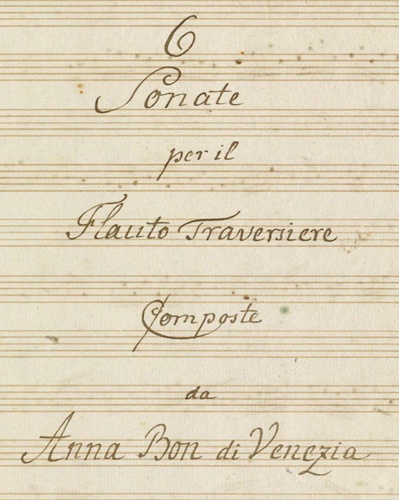 6
Sonate
per il
Flauto Traversiere
Composte
da
Anna Bon di Venezia